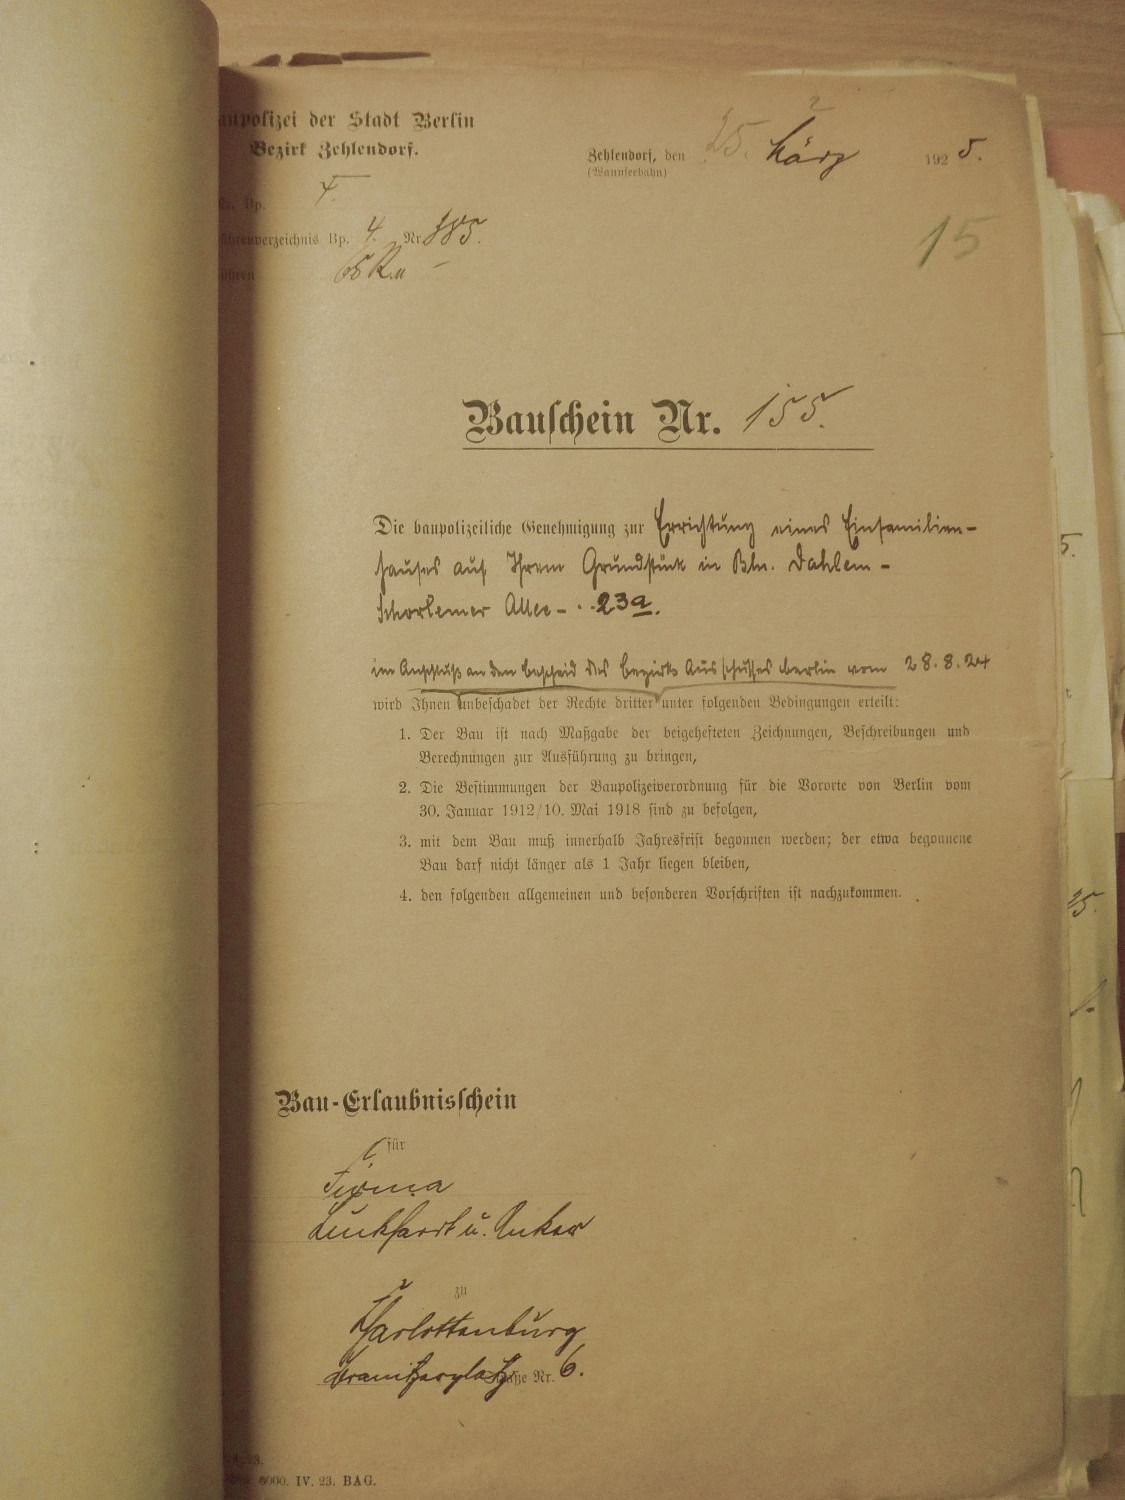 aupolizei der Stadt Berlin
Bezirk Zehlendorf.
Zehlendorf, den 25. März 1925.
(Wannseebahn)
Nr. Bp.
ührenverzeichnis Bp. 4. Nr. 885.
ühren
15
Bauschein Nr. 155.
Die baupolizeiliche Genehmigung zur Errichtung eines Einfamilien-
hauses auf Ihrem Grundstück in Bln. Dahlem -
Schorlemer Allee - 23a.
im Anschluß an den Bescheid des Bezirks Ausschusses Berlin vom 28.8.24
wird Ihnen unbeschadet der Rechte dritter unter folgenden Bedingungen erteilt:
1. Der Bau ist nach Maßgabe der beigehefteten Zeichnungen, Beschreibungen und
Berechnungen zur Ausführung zu bringen,
2. Die Bestimmungen der Baupolizeiverordnung für die Vororte von Berlin vom
30. Januar 1912/10. Mai 1918 sind zu befolgen,
3. mit dem Bau muß innerhalb Jahresfrist begonnen werden; der etwa begonnene
Bau darf nicht länger als 1 Jahr liegen bleiben,
4. den folgenden allgemeinen und besonderen Vorschriften ist nachzukommen.
Bau-Erlaubnisschein
für
Firma
Luckhardt u. Anker
zu
Charlottenburg
Branitzerplatz Straße Nr. 6.
6000. IV. 23. BAG.